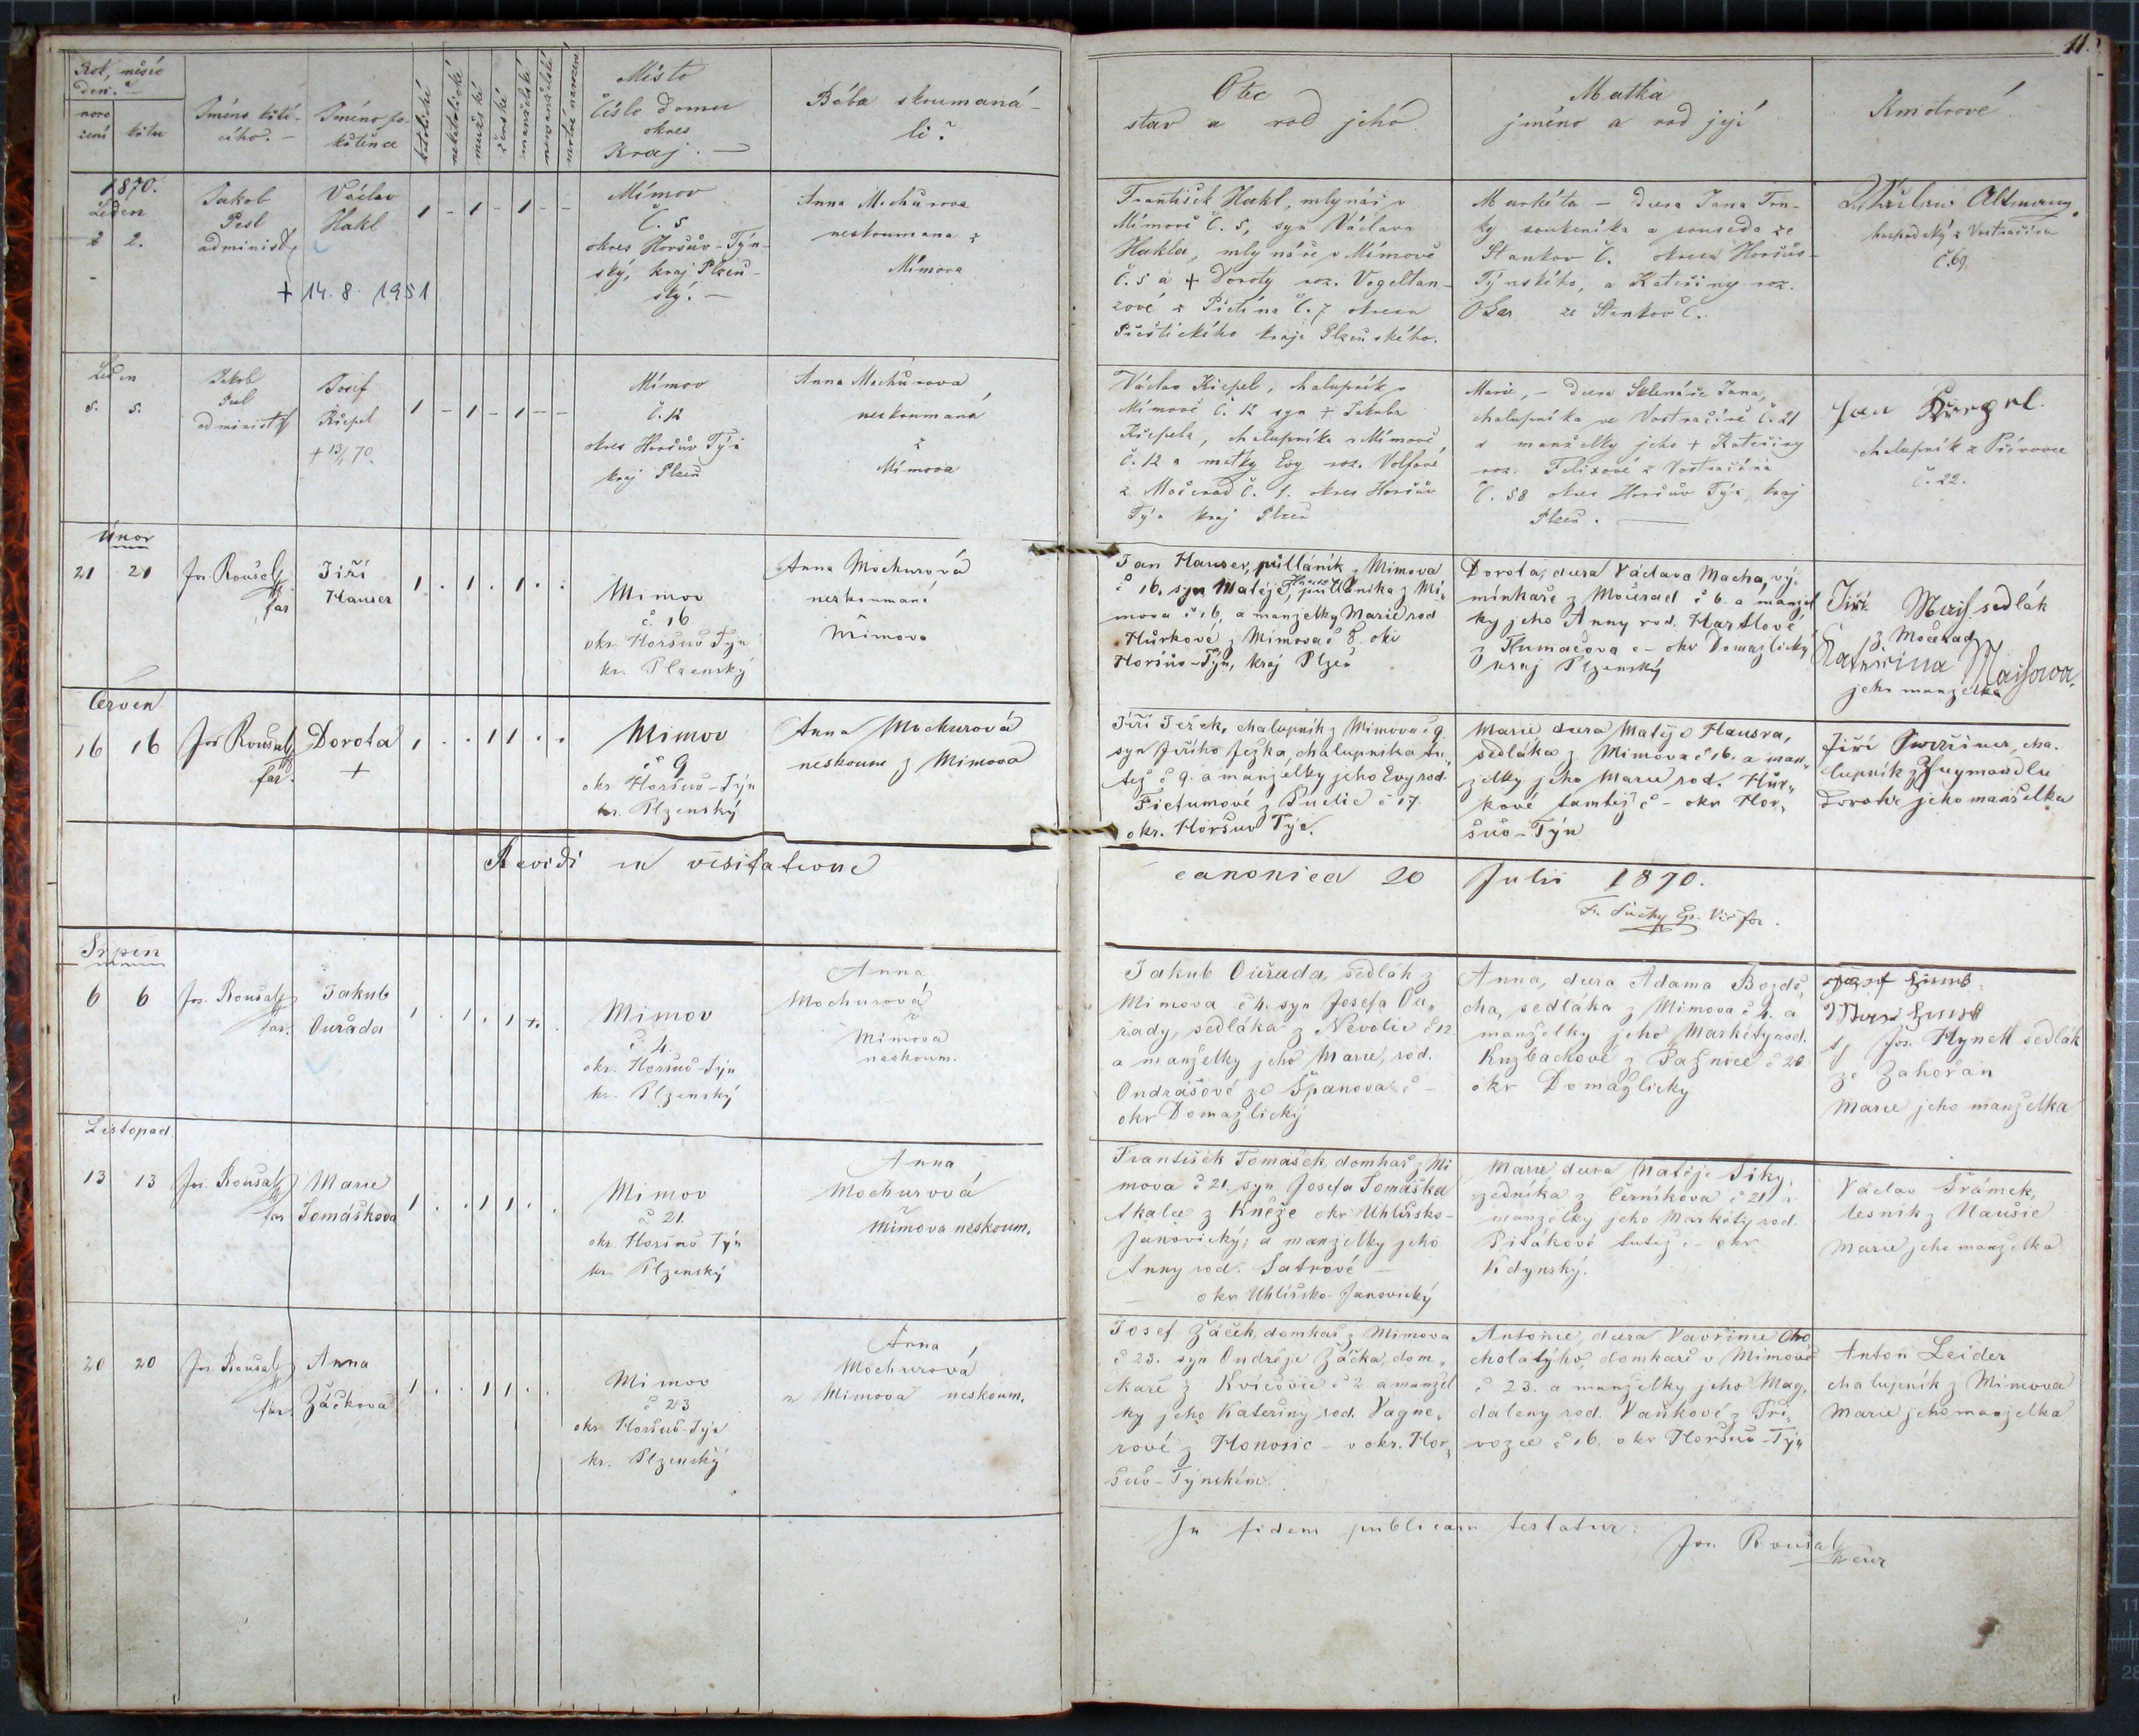 11.
Rok, měsíc
a
den.
naro
zení
křtu
Jméno křtí-
cího. -
Jméno po-
křtěnce
katolické
nekatolické
mužské
ženské
manželské
nemanželské
mrtvě narozené
Místo
Číslo domu
okres
Kraj. -
Bába skoumaná-
li?
Otec
stav a rod jeho
Matka
jméno a rod její
Kmotrové.
1870.
Leden
2 2.
Jakob
Pesl
administ
Václav
Hakl
+ 14. 8. 1951
1 - 1 - 1 - -
Mímov
Č. 5
okres Horšův-Týn-
ský, kraj Plzeň-
ský. -
Anna Mochůrova
neskoumana z
Mímova
František Hakl, mlynář v
Mímově Č. 5, syn Václava
Hakla, mlynáře v Mímově
Č. 5 a + Doroty roz. Vogeltan-
zové z Č. 7 okresu
Přeštického kraje Plzeňského.
Markéta - dcera Jana Trn-
ky soukeníka a souseda ze
Stankov Č. okresu Horšův-
Týnského, a Kateřiny roz.
ze Stankov Č.
Altmann
z Vostračína
Č. 69
Leden
5. 5.
Jakob
Pesl
administ
Josif
Křepel
+ 13/1 70.
1 - 1 - 1 - -
Mímov
Č. 12
okres Horšův Týn
kraj Plzeň
Anna Mochůrová
neskoumaná
z
Mímova
Václav Křepel, chalupník v
Mímově Č. 12 syn + Jakuba
Křepela, chalupníka v Mímově,
Č. 12 a matky Evy roz. Volfové
z Močerad Č. 1. okres Horšův
Týn kraj Plzeň
Marie, - dcera Sklenáře Jana,
chalupníka ve Vostračíně Č. 21
a manželky jeho + Kateřiny
roz. Felixové z Vostračína
Č. 58 okres Horšův Týn, kraj
Plzeň. -
Jan
chalupník z Přívozce
Č. 22.
Únor
21 21
Jos. Roušal
far
Jiří
Hauser
1 . 1 . 1 . .
Mimov
č. 16
okr. Horšův Týn
kr. Plzenský
Anna Mochurová
neskoumaná
z
Mimova
Jan Hauser, půlláník z Mimova
č 16. syn Matěj Hauser, půlláníka z Mi-
mova č 16, a manželky Marie rod
Hůrkové z Mimova č 8. okr
Horšův-Týn, kraj Plzeň
Dorota, dcera Václava Macha, vý-
minkaře z Močerad č 6. a manžel
ky jeho Anny rod. Hartlové
z Tlumačova č - okr Domažlický
kraj Plzenský
Jiří sedlák
z Močerad
jeho manželka
Červen
16 16
Jos Roušal
far.
Dorota
+
1 . . 1 1 . .
Mimov
č 9
okr Horšův-Týn
kr. Plzenský
Anna Mochurová
neskoum z Mimova
Jiří Ježek, chalupník z Mimova č 9
syn Jiřího Ježka, chalupníka tu-
tež č 9. a manželky jeho Evy rod.
z Pušlic č 17.
okr. Horšův Týn.
Marie dcera Matěje Hausra,
sedláka z Mimova č 16. a man-
želky jeho Marie rod. Hůr-
kové tamtéž č - okr Hor-
šův-Týn
Jiří cha-
lupník z
Dorota jeho manželka
Revidi in visitatione
canonica 20 Julii 1870.
Fr. Suchy Ep. Vic for.
Srpen
6 6
Jos. Roušal
far.
Jakub
Ouřada
1 . 1 . 1 . .
Mimov
č 4.
okr. Horšův-Týn
kr. Plzenský
Anna
Mochurová
z
Mimova
neskoum.
Jakub Ouřada, sedlák z
Mimova č 4. syn Josefa Ou-
řady, sedláka z Nevolic č 12
a manželky jeho Marie, rod.
Ondrášové ze Španova č -
okr Domažlický
Anna, dcera Adama Bozdě-
cha, sedláka z Mimova č 4. a
manželky jeho Markéty rod.
z Pasznice č 20
okr Domažlický
Jos. Hynek sedlák
ze Zahořan
Marie jeho manželka
Listopad
13 13
Jos. Roušal
far
Marie
Tomášková
1 . . 1 1 . .
Mimov
č 21.
okr. Horšův Týn
kr. Plzenský
Anna
Mochurová
z
Mimova neskoum.
František Tomášek, domkař z Mi
mova č 21 syn Josefa Tomáška
tkalce z Kněže okr Uhlířsko-
Janovický; a manželky jeho
Anny rod. Satrové -
okr Uhlířsko-Janovický
Marie dcera Matěje Siky,
zedníka z Černíkova č 21 a
manželky jeho Markéty rod.
Pitákové tutéž č - okr
Kdynský.
Václav Šrámek,
lesník z Naušic
Marie jeho manželka
20 20
Jos. Roušal
far
Anna
Žáčková
1 . . 1 1 . .
Mimov
č 23
okr Horšův-Týn
kr. Plzenský
Anna
Mochurová
z Mimova neskoum.
Josef Žáček, domkař z Mimova
č 23. syn Ondřeje Žáčka, dom-
kaře z Kvíčovic č 2 a manžel
ky jeho Kateřiny rod. Vagne-
rové z Honosic - v okr. Hor-
šův-Týnském.
Antonie, dcera Vavřince Cho
cholatýho, domkaře v Mimově
č 23. a manželky jeho Mag-
daleny rod. Vaňkové z Pří-
vozce č 16. okr Horšův-Týn
Anton Leider
chalupník z Mimova
Marie jeho manželka
In fidem publicam testatur:
Jos. Roušal